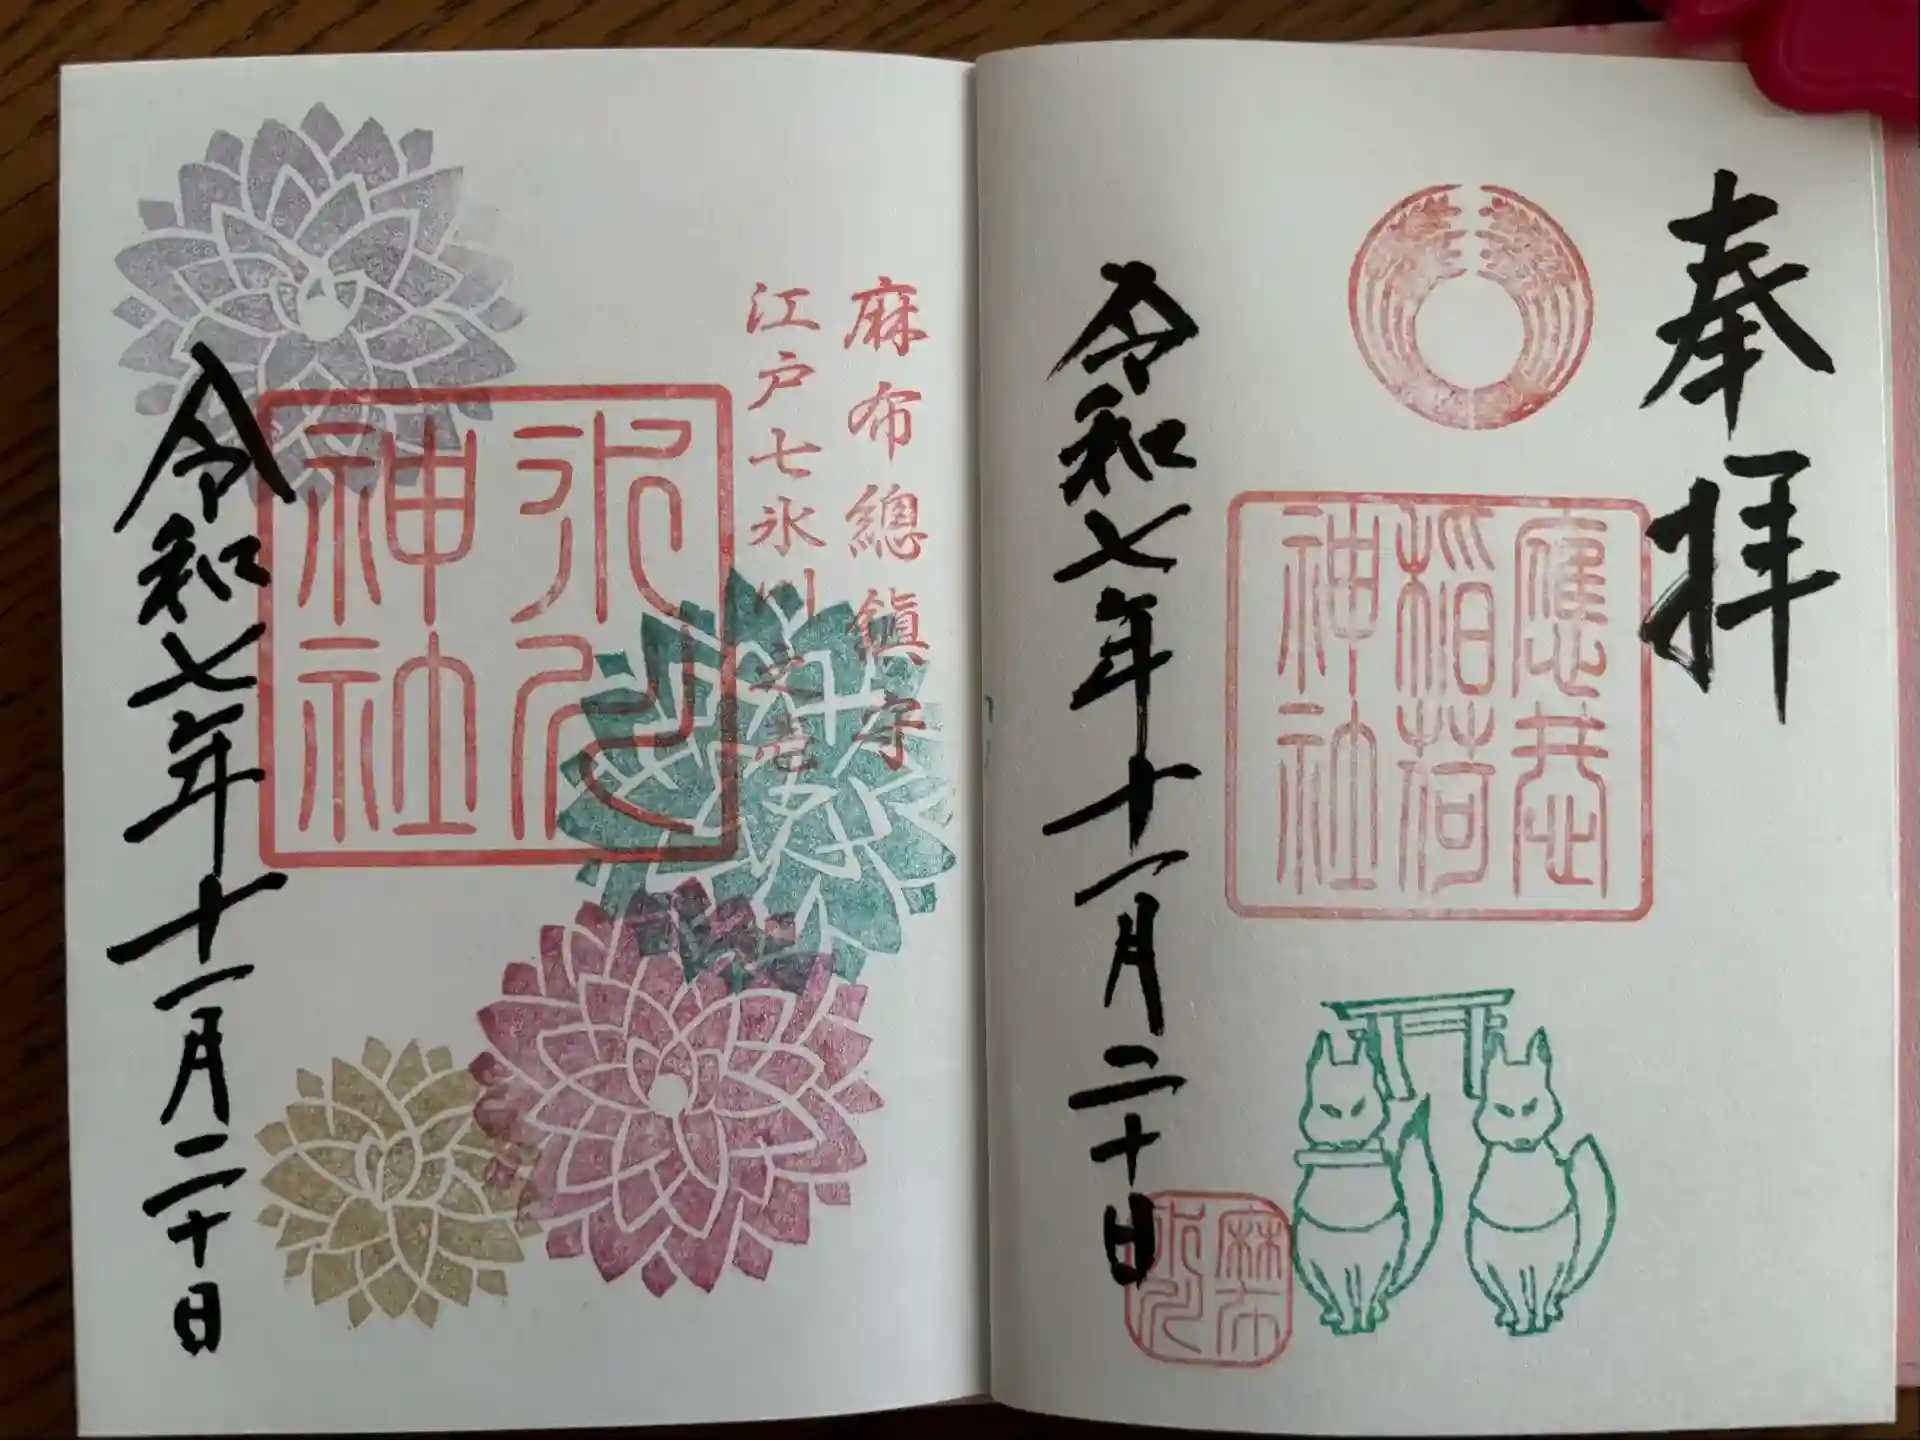 奉拝
應恭
稲荷
神社
令和七年十一月二十日
麻布
氷川
麻布總鎮守
江戸七氷川之壱
氷川
神社
令和七年十一月二十日